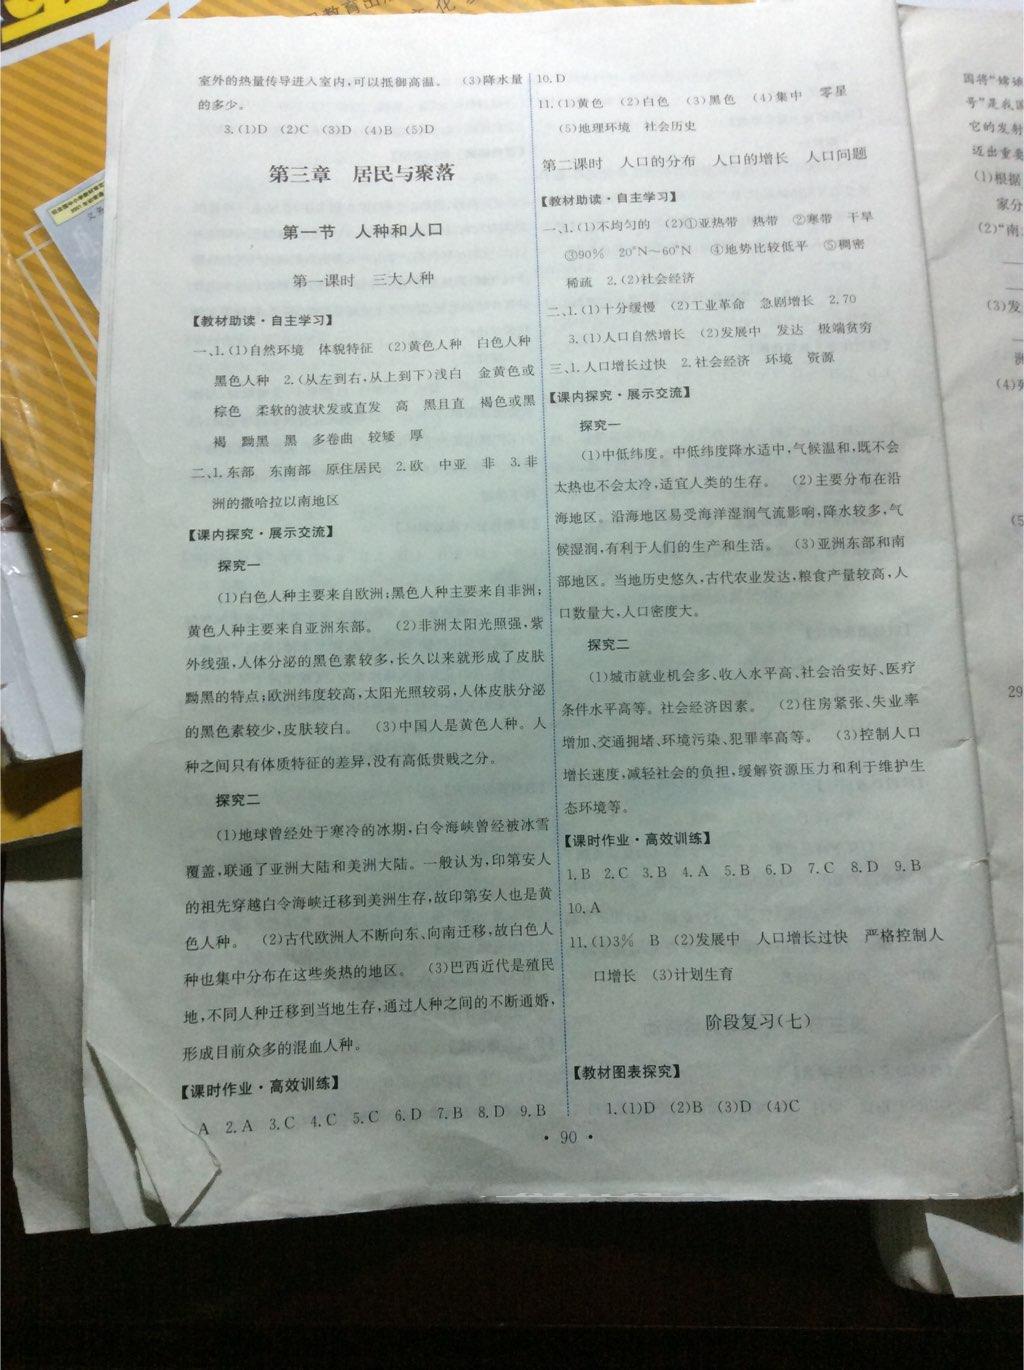 教育出
文化
室外的热量传导进入室内,可以抵御高温。 (3)降水量
的多少。
3.(1)D (2)C (3)D (4)B (5)D
第三章 居民与聚落
第一节 人种和人口
第一课时 三大人种
【教材助读·自主学习】
一、1.(1)自然环境 体貌特征 (2)黄色人种 白色人种
黑色人种 2.(从左到右,从上到下)浅白 金黄色或
棕色 柔软的波状发或直发 高 黑且直 褐色或黑
褐 黝黑 黑 多卷曲 较矮 厚
二、1.东部 东南部 原住居民 2.欧 中亚 非 3.非
洲的撒哈拉以南地区
【课内探究·展示交流】
探究一
(1)白色人种主要来自欧洲;黑色人种主要来自非洲;
黄色人种主要来自亚洲东部。 (2)非洲太阳光照强,紫
外线强,人体分泌的黑色素较多,长久以来就形成了皮肤
黝黑的特点;欧洲纬度较高,太阳光照较弱,人体皮肤分泌
的黑色素较少,皮肤较白。 (3)中国人是黄色人种。人
种之间只有体质特征的差异,没有高低贵贱之分。
探究二
(1)地球曾经处于寒冷的冰期,白令海峡曾经被冰雪
覆盖,联通了亚洲大陆和美洲大陆。一般认为,印第安人
的祖先穿越白令海峡迁移到美洲生存,故印第安人也是黄
色人种。 (2)古代欧洲人不断向东、向南迁移,故白色人
种也集中分布在这些炎热的地区。 (3)巴西近代是殖民
地,不同人种迁移到当地生存,通过人种之间的不断通婚,
形成目前众多的混血人种。
【课时作业·高效训练】
A 2.A 3.C 4.C 5.C 6.D 7.B 8.D 9.B
10.D
11.(1)黄色 (2)白色 (3)黑色 (4)集中 零星
(5)地理环境 社会历史
第二课时 人口的分布 人口的增长 人口问题
【教材助读·自主学习】
一、1.(1)不均匀的 (2)①亚热带 热带 ②寒带 干旱
③90% 20°N~60°N ④地势比较低平 ⑤稠密
稀疏 2.(2)社会经济
二、1.(1)十分缓慢 (2)工业革命 急剧增长 2.70
3.(1)人口自然增长 (2)发展中 发达 极端贫穷
三、1.人口增长过快 2.社会经济 环境 资源
【课内探究·展示交流】
探究一
(1)中低纬度。中低纬度降水适中,气候温和,既不会
太热也不会太冷,适宜人类的生存。 (2)主要分布在沿
海地区。沿海地区易受海洋湿润气流影响,降水较多,气
候湿润,有利于人们的生产和生活。 (3)亚洲东部和南
部地区。当地历史悠久,古代农业发达,粮食产量较高,人
口数量大,人口密度大。
探究二
(1)城市就业机会多、收入水平高、社会治安好、医疗
条件水平高等。社会经济因素。 (2)住房紧张、失业率
增加、交通拥堵、环境污染、犯罪率高等。 (3)控制人口
增长速度,减轻社会的负担,缓解资源压力和利于维护生
态环境等。
【课时作业·高效训练】
1.B 2.C 3.B 4.A 5.B 6.D 7.C 8.D 9.B
10.A
11.(1)3% B (2)发展中 人口增长过快 严格控制人
口增长 (3)计划生育
阶段复习(七)
【教材图表探究】
1.(1)D (2)B (3)D (4)C
· 90 ·
国将“嫦
号”是我国
它的发射
迈出重要
(1)根据
家分
(2)“南
(3)发
洲
(4)
(5
29